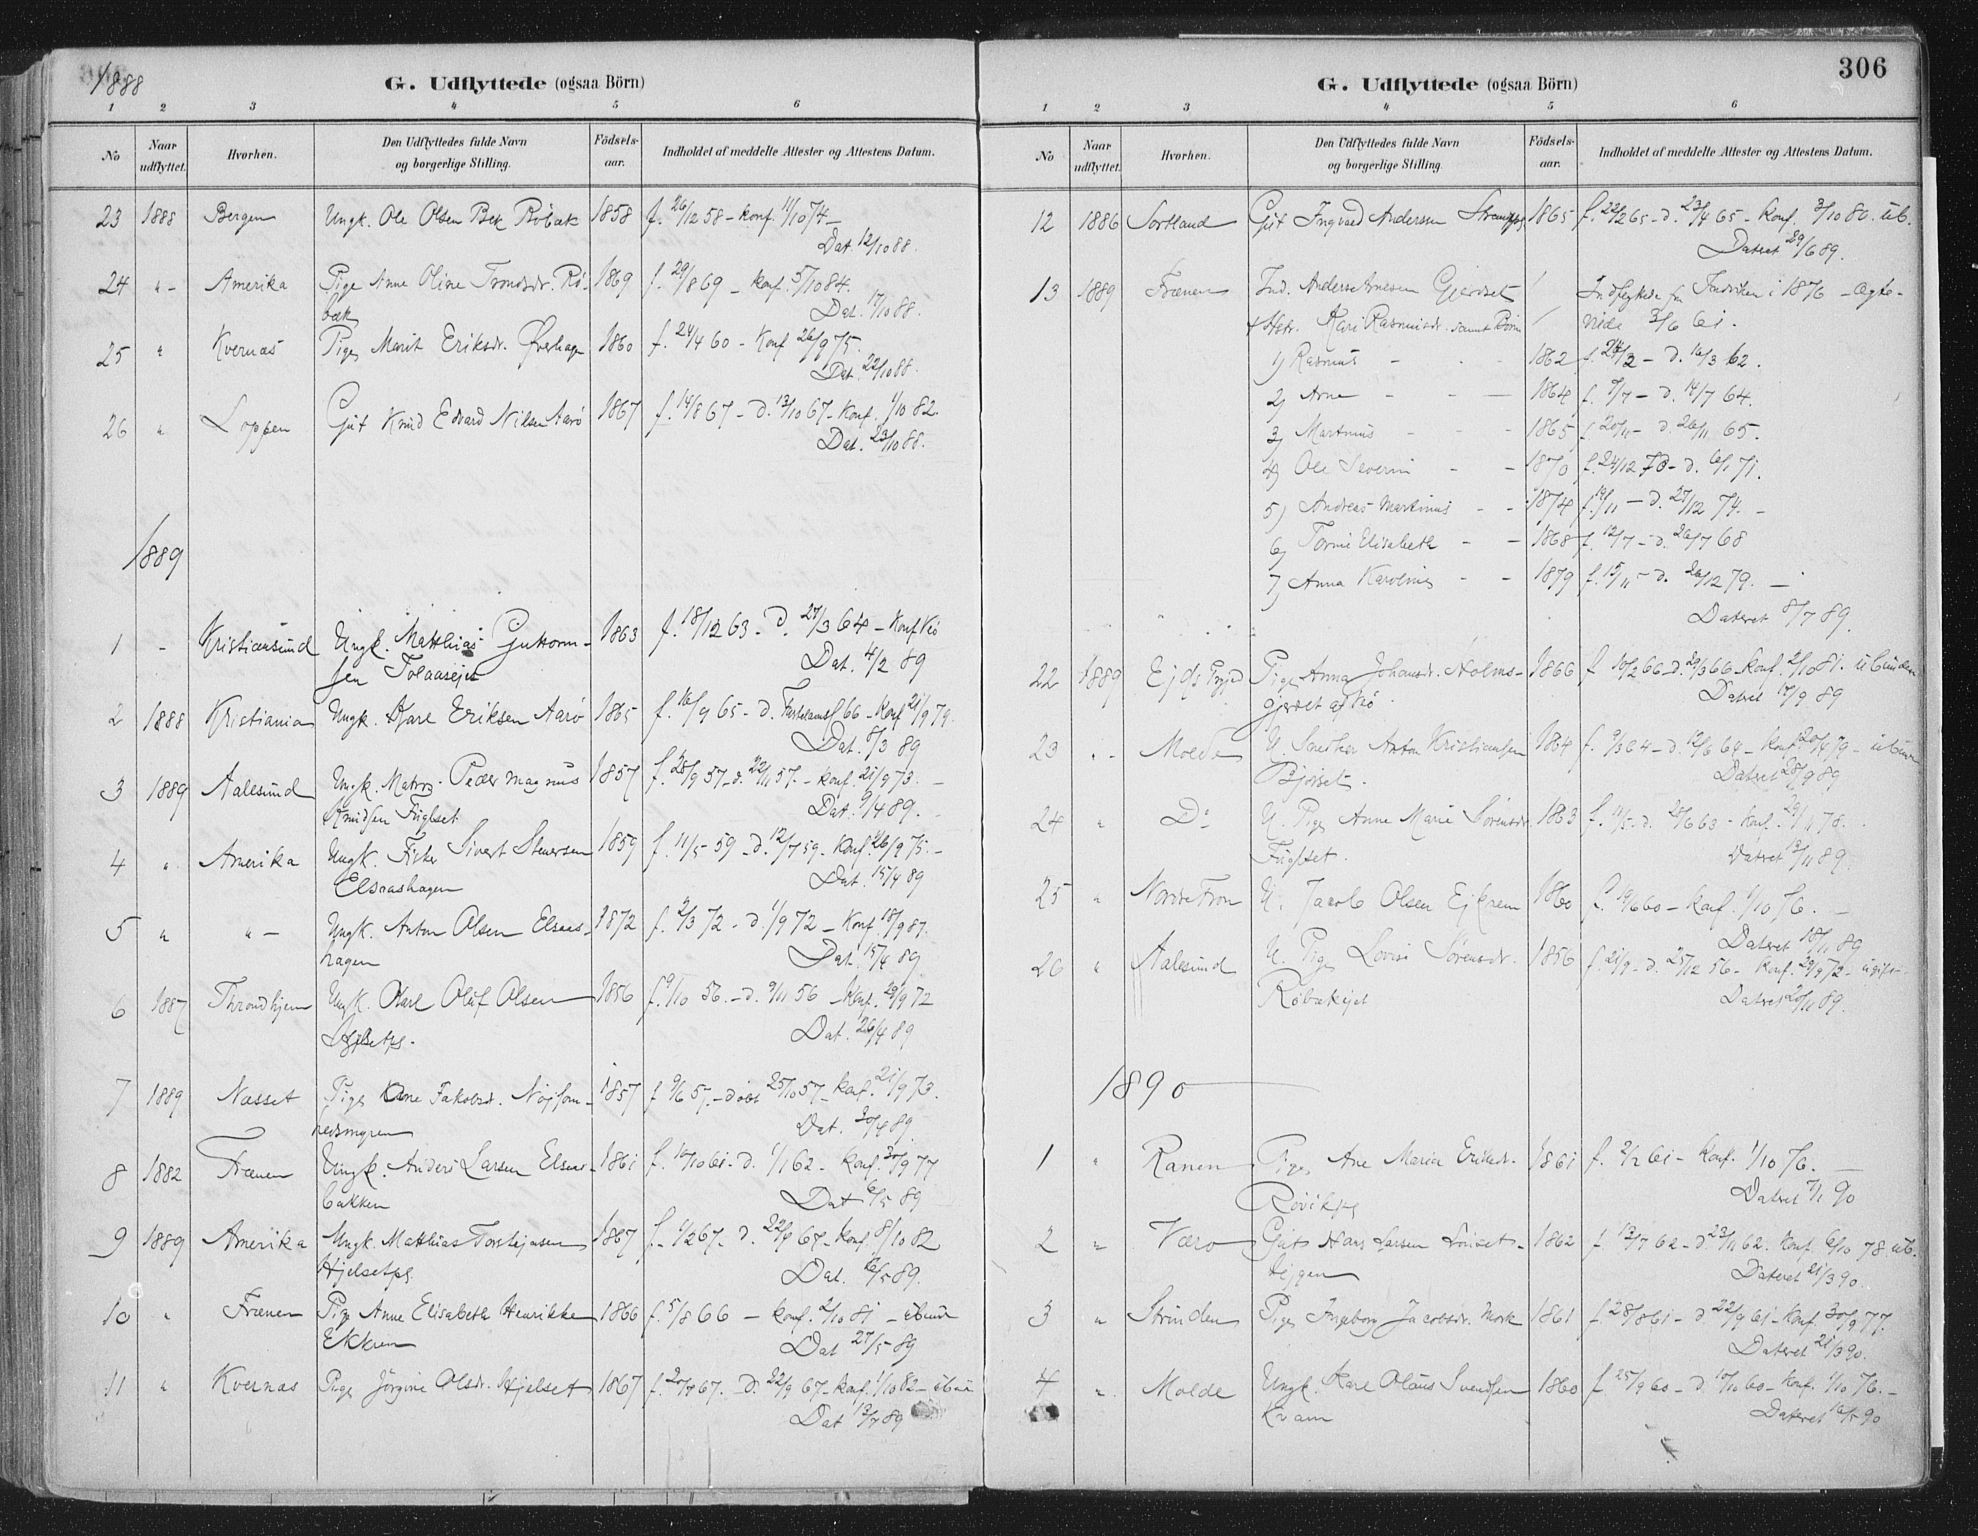 1888
G. Udflyttede (ogsaa Börn)
1 2 3 4 5 6
No
Naar udflyttet.
Hvorhen.
Den Udflyttedes fulde Navn og borgerlige Stilling.
Födsels-aar.
Indholdet af meddelte Attester og Attestens Datum.
23 1888 Bergen Ungk. Ole Olsen Bek Röbæk 1858 f. 26/12 58 - konf. 11/10 74 -
Dat. 12/10 88.
24 " - Amerika Pige Anne Oline Trondsdr. Rö- 1869 f. 29/8 69 - konf. 5/10 84.
bæk Dat. 17/10 88.
25 " Kvernæs Pige Marit Eriksdr. Øverhagen 1860 f. 24/4 60 - Konf. 26/9 75.
Dat. 22/10 88.
26 " Loppen Gut Knud Edvard Nilsen Aarö 1867 f. 14/8 67 - d. 13/10 67 - Konf. 1/10 82.
Dat. 23/10 88.
1889
1 - Kristiansund Ungk. Matthias Guttorm- 1863 f. 18/12 63 - d. 27/3 64 - Konf Kö
sen Tolaasejet Dat. 4/2 89
2 1888 Kristiania Ungk. Karl Eriksen Aarö 1865 f. 16/9 65 - d. Fastelavnsd 66 - Konf 21/9 79.
Dat. 8/3 89
3 1889 Aalesund Ungk. Matros Peder Magnus 1857 f. 28/9 57 - d. 22/11 57. - konf. 21/9 73. -
Knudsen Fuglset Dat. 9/4 89.
4 " Amerika Ungk. Fisker Sivert Steversen 1859 f. 11/5 59 - d. 12/7 59 - Konf. 26/9 75. -
Elsaashagen Dat. 15/4 89
5 " " - Ungk. Anton Olsen Elsaas- 1872 f. 2/3 72 - d. 1/9 72 - Konf. 18/9 87.
hagen Dat. 15/4 89
6 1887 Throndhjem Ungk. Karl Oluf Olsen 1856 f. 9/10 56. - d. 9/11 56 - Konf. 29/9 72
Hjelsetpl. Dat. 26/4 89
7 1889 Næsset Pige Ane Jakobsd. Nöjsom- 1857 f 9/6 57. - döbt 25/10 57 - konf. 21/9 73.
hedsmyren Dat. 30/4 89.
8 1882 Frænen Ungk. Anders Larsen Elsaas- 1861 f. 10/10 61 - d. 1/1 62 - Konf. 30/9 77
bakken Dat 6/5 89
9 1889 Amerika Ungk. Matthias Torstejnsen 1867 f. 1/2 67. - d. 22/4 67 - Konf. 8/10 82
Hjelsetpl. Dat. 16/5 89.
10 " Frænen Pige Anne Elisabeth Henrikke 1866 f. 5/8 66 - konf. 2/10 81 - ubund
Ekkren Dat 27/5 89
11 " Kvernæs Pige Jörgine Olsdr. Hjelset 1867 f. 20/7 67. - D. 22/9 67 - konf. 1/10 82 -
Dat 13/7 89
306
G. Udflyttede (ogsaa Börn)
1 2 3 4 5 6
No
Naar udflyttet.
Hvorhen.
Den Udflyttedes fulde Navn og borgerlige Stilling.
Födsels-aar.
Indholdet af meddelte Attester og Attestens Datum.
12 1886 Sortland Gut Ingvald Anderssen 1865 f. 22/2 65 - d. 23/4 65 - Konf. 3/10 80. ub.
Dateret 29/6 89.
13 1889 Frænen Ind. Anders Arnesen Gjerdset Indflyttede fra Indviken i 1876 - Ægte-
+ Hstr. Kari Rasmusdr. samt Börn viede 3/6 61.
1) Rasmus - - - 1862 f. 24/2 - d. 16/3 62.
2) Arne - - - 1864 f. 7/7 - d. 14/7 64.
3) Martinus - - - 1865 f 20/11 - d. 26/11 65.
4) Ole Severin - - 1870 f. 24/12 70 - d. 6/1 71.
5) Andreas Martinus - - 1874 f. 19/11 - d. 27/12 74. -
6) Tomie Elisabeth - - 1868 f. 12/7 - d. 26/7 68
7) Anna Karolina - - 1879 f. 15/11 - d. 26/12 79. -
Dateret 8/7 89.
22 1889 Ejds Pgjd Pige Anna Johansdr. Holms- 1866 f 10/2 66 - d. 29/3 66 - konf. 2/10 81. ubunden
gjerdet af Kö. Dateret 17/9 89
23 " - Molde U. Snedker Anton Kristiansen 1864 f. 9/3 64 - d. 12/6 64 - konf 20/4 79 -
Bjórset. Dateret 28/9 89.
24 " Do U. Pige Anne Marie Sörensdr. 1863 f. 11/5 - d. 25/6 63 - konf. 29/9 78.
Fuglset. Dateret 13/11 89.
25 " Nordre Fron U. Jacob Olsen Ejkrem 1860 f. 19/6 60 - konf. 1/10 76. -
Dateret 18/11 89
26 " Aalesund U. Pige Lovise Sörensdr. 1856 f. 21/9 - d. 25/12 56 - konf. 29/9 72 - ugift -
Röbækejet Dateret 20/11 89.
1890
1 " Ranen Pige Ane Maria Eriksdr. 1861 f. 2/2 61 - konf. 1/10 76. -
Rövikpl Dateret 7/1 90
2 " Værö Gut Hans Larsen 1862 f 13/7 62 - d. 23/11 62. konf. 6/10 78. ub.
Dateret 21/3 90.
3 " Strinden Pige Ingeborg Jacobsdr. Mork 1861 f 28/8 61 - d. 22/9 61 - konf. 30/9 77.
Dateret 21/3 90.
4 " Molde Ungk. Karl Olaus Svendsen 1860 f 25/9 60 - d. 17/10 60 - Konf. 1/10 76. -
Kvam Dateret 16/5 90